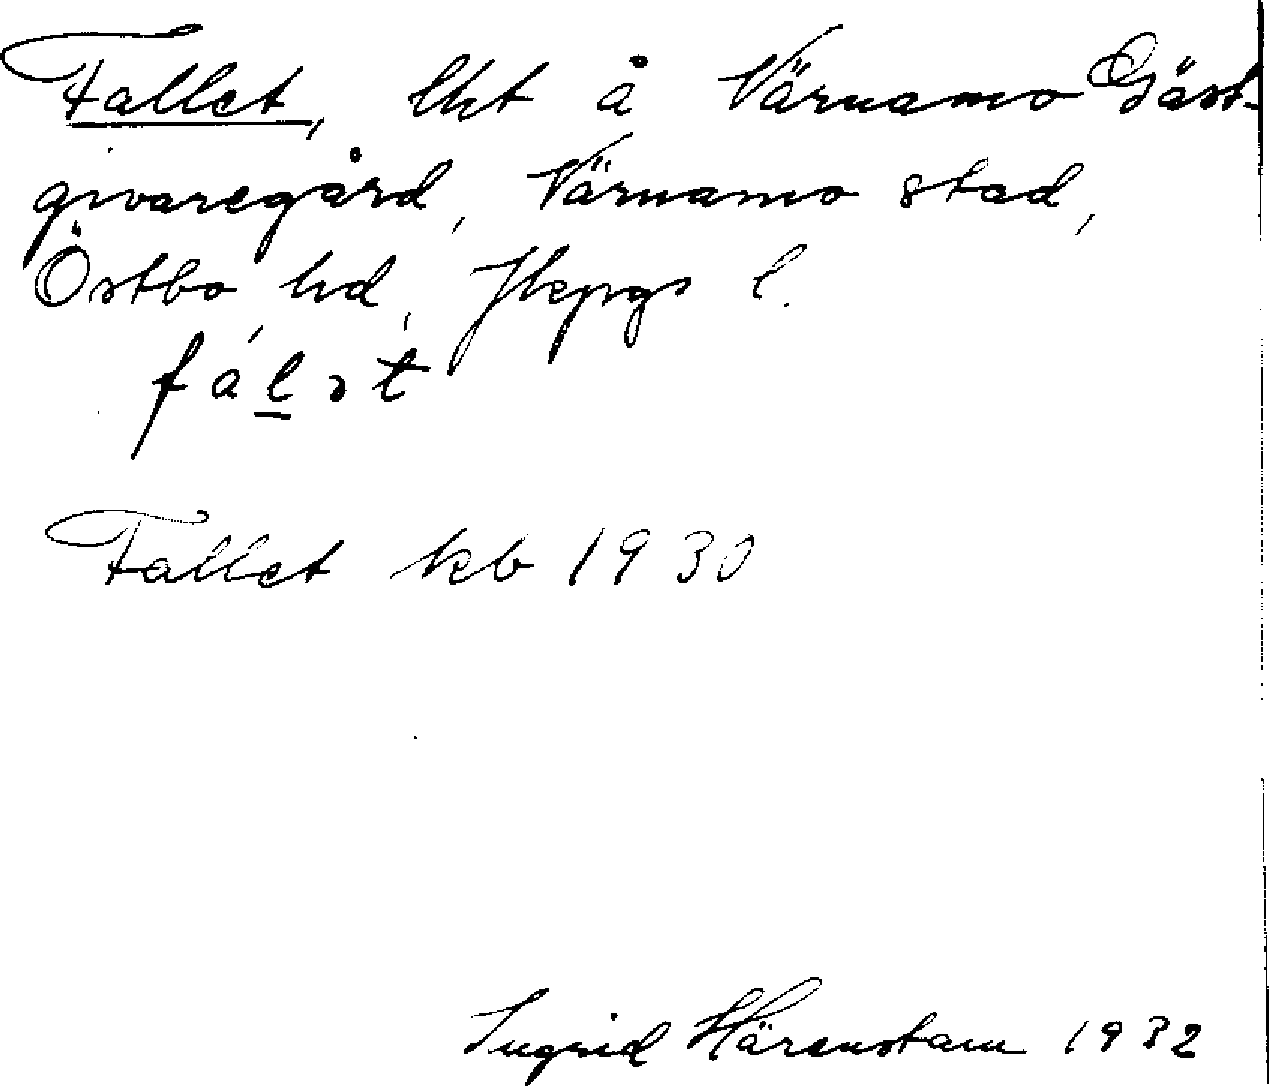 Fallet, lht å Värnamo Gäst-
givaregård, Värnamo stad,
Östbo hd, Jkpgs l.
fálət
Fallet kb 1930
Ingrid Härenstam 1932